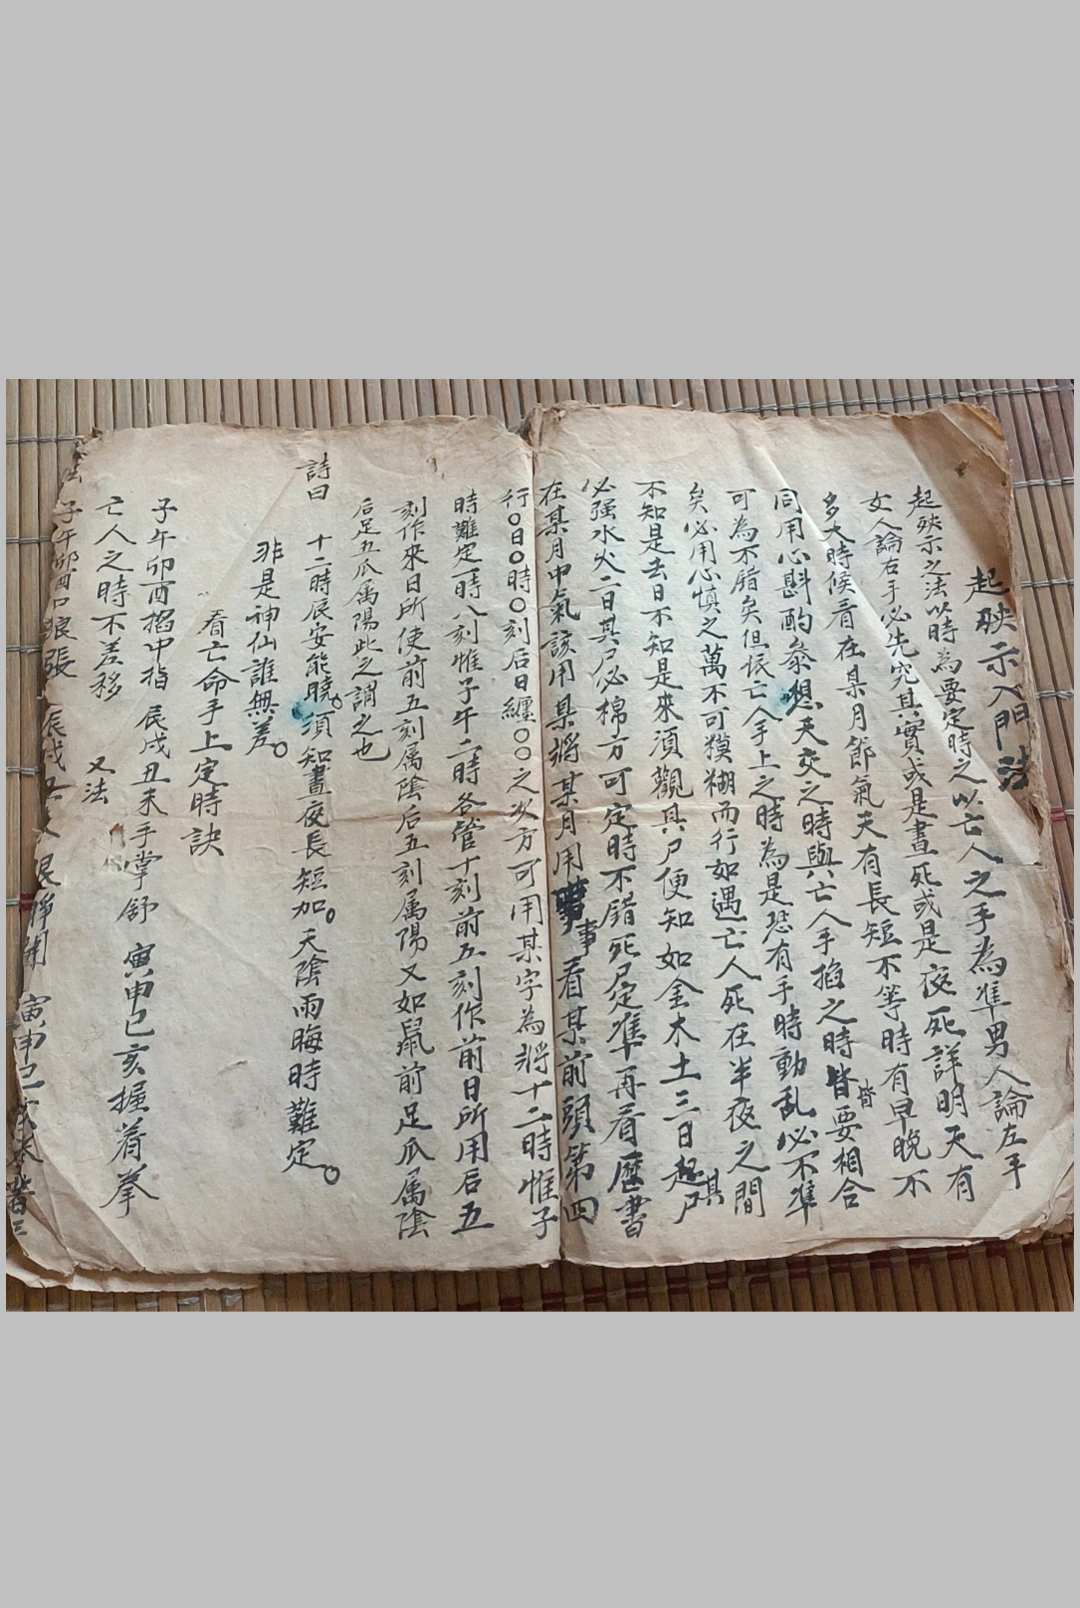 起殃示入門法
起殃示之法以時為要定時之以亡人之手為準男人論左手
女人論右手必先究其實或是晝死或是夜死詳明天有
多大時候看在某月節氣天有長短不等時有早晚不
同用心斟酌叅想天交之時與亡人手掐之時皆要相合
皆
可為不腊矣但恨亡人手上之時為是恐有手時動乱必不準
矣必用心慎之萬不可模糊而行如遇亡人死在半夜之間
不知是去日不知是來須觀具尸便知如金木土三日起尸
其
必强水火二日其尸必棉方可定時不錯死尸定準再看曆書
在某月中氣該用某將某月用事看某前頭第四
行〇日〇時〇刻后日纏〇〇之次方可用某字為將十二時惟子
時難定一時八刻惟子午二時各管十刻前五刻作前日所用后五
刻作來日所使前五刻属陰后五刻属陽又如鼠前足爪属陰
后足五爪属陽此之謂之也
詩曰
十二時辰安能曉。須知晝夜長短加。天陰雨晦時難定。
非是神仙誰無差。
看亡命手上定時訣
子午卯酉掐中指 辰戌丑未手掌舒 寅申巳亥握着拳
亡人之時不差移 又法
子午卯酉口張 辰戌 眼睜開 寅申巳